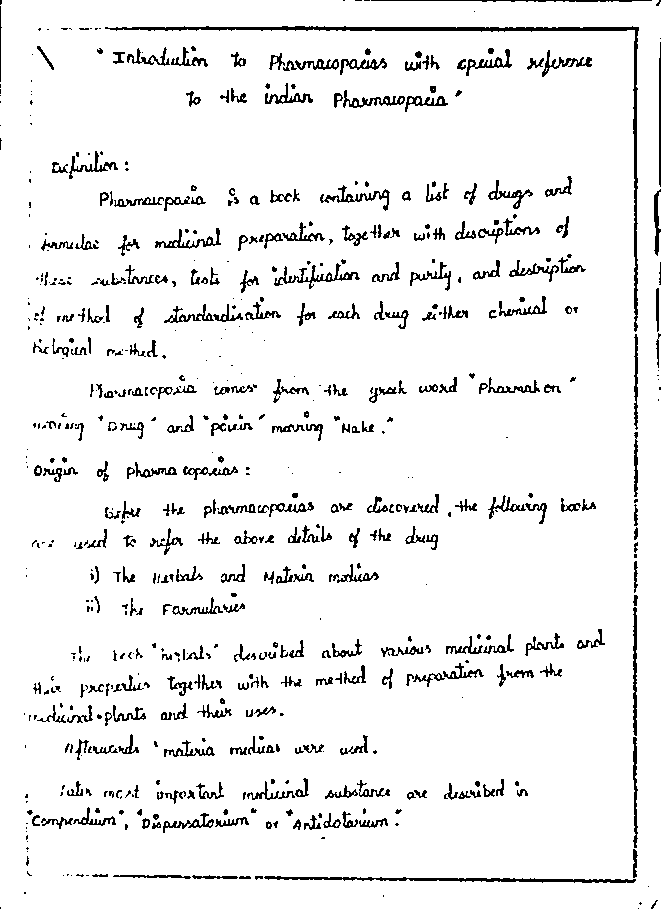 "Introduction to Pharmacopoeias with special reference
to the indian Pharmacopoeia"
Definition :
Pharmacopoeia is a book containing a list of drugs and
formulae for medicinal preparation, together with descriptions of
these substances, tests for identification and purity, and description
of method of standardisation for each drug either chemical or
biological method.
Pharmacopoeia comes from the greek word "Pharmakon"
meaning "Drug" and "poiein" meaning "Make."
Origin of pharmacopoeias :
Before the pharmacopoeias are discovered, the following books
are used to refer the above details of the drug
i) The Herbals and Materia medicas
ii) The Formularies
The book "herbals" described about various medicinal plants and
their properties together with the method of preparation from the
medicinal plants and their uses.
Afterwards "materia medicas were used.
Later most important medicinal substance are described in
"Compendium", "Dispensatorium" or "Antidotarium".